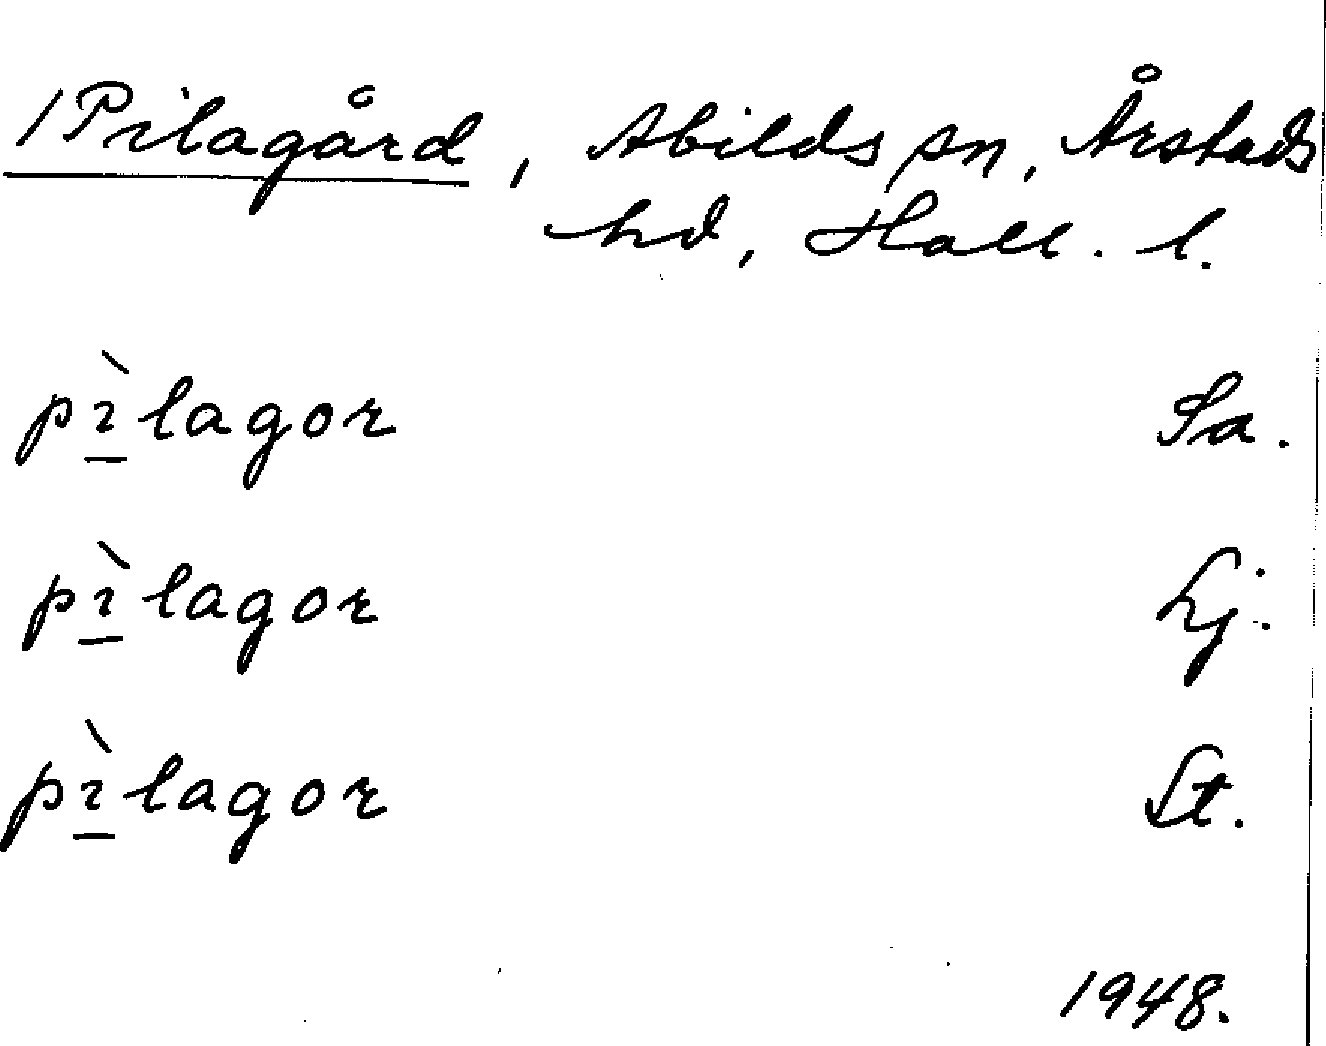 /Pilagård, Abilds sn, Årstads
hd, Hall. l.
pì̲lagor Sa.
pì̲lagor Lj.
pì̲lagor St.
1948.